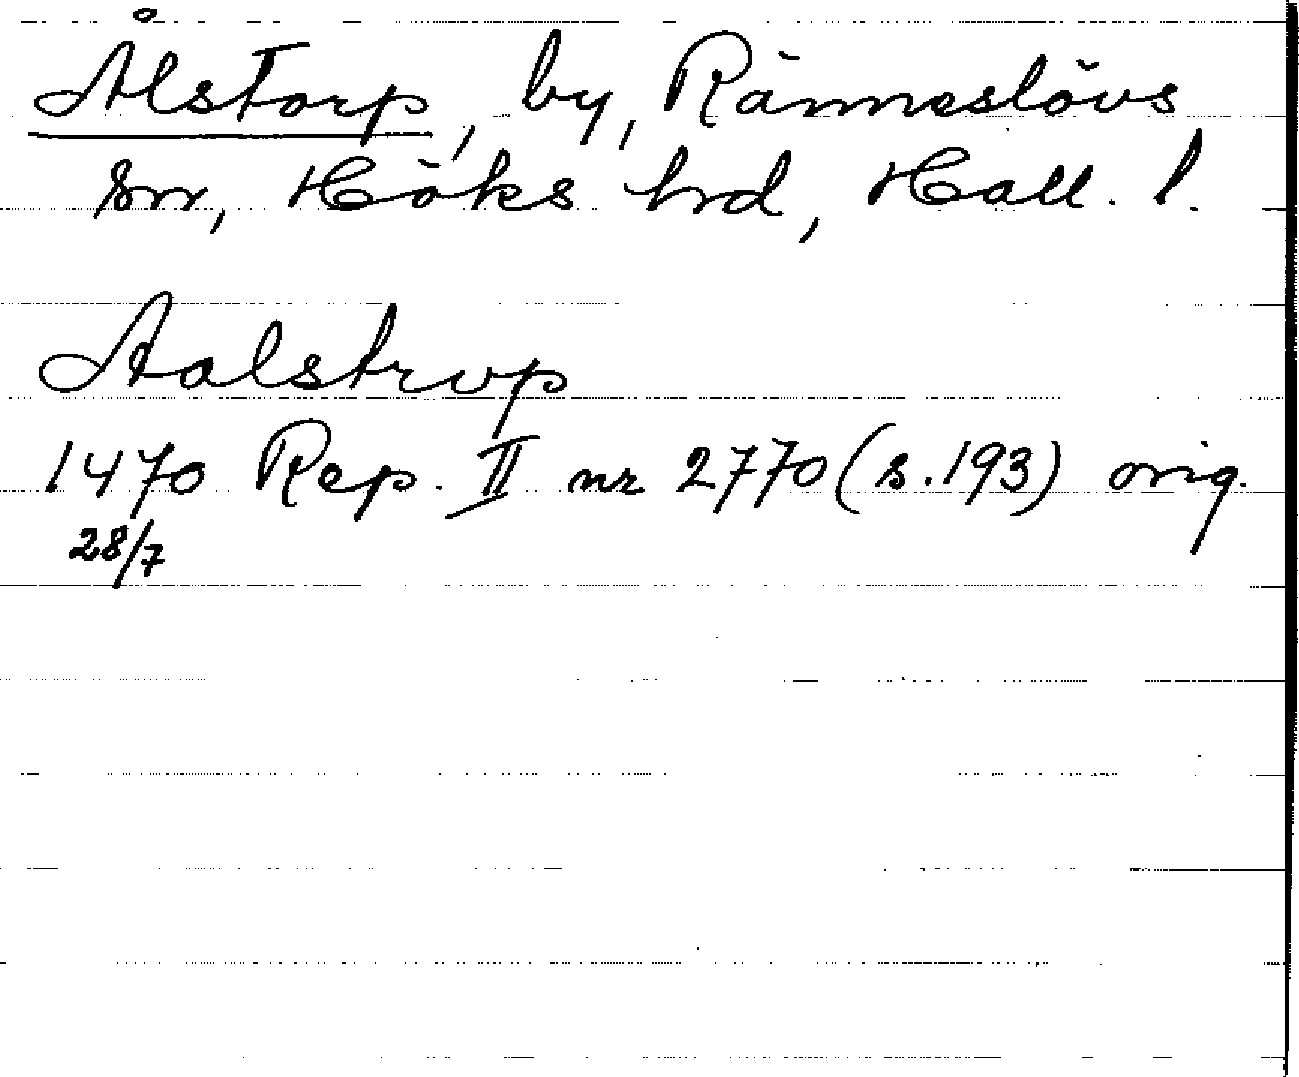 Ålstorp, by, Ränneslövs
sn, Höks hrd, Hall. l.
Aalstrup
1470 Rep. II nr 2770 (s. 193) orig.
28/7